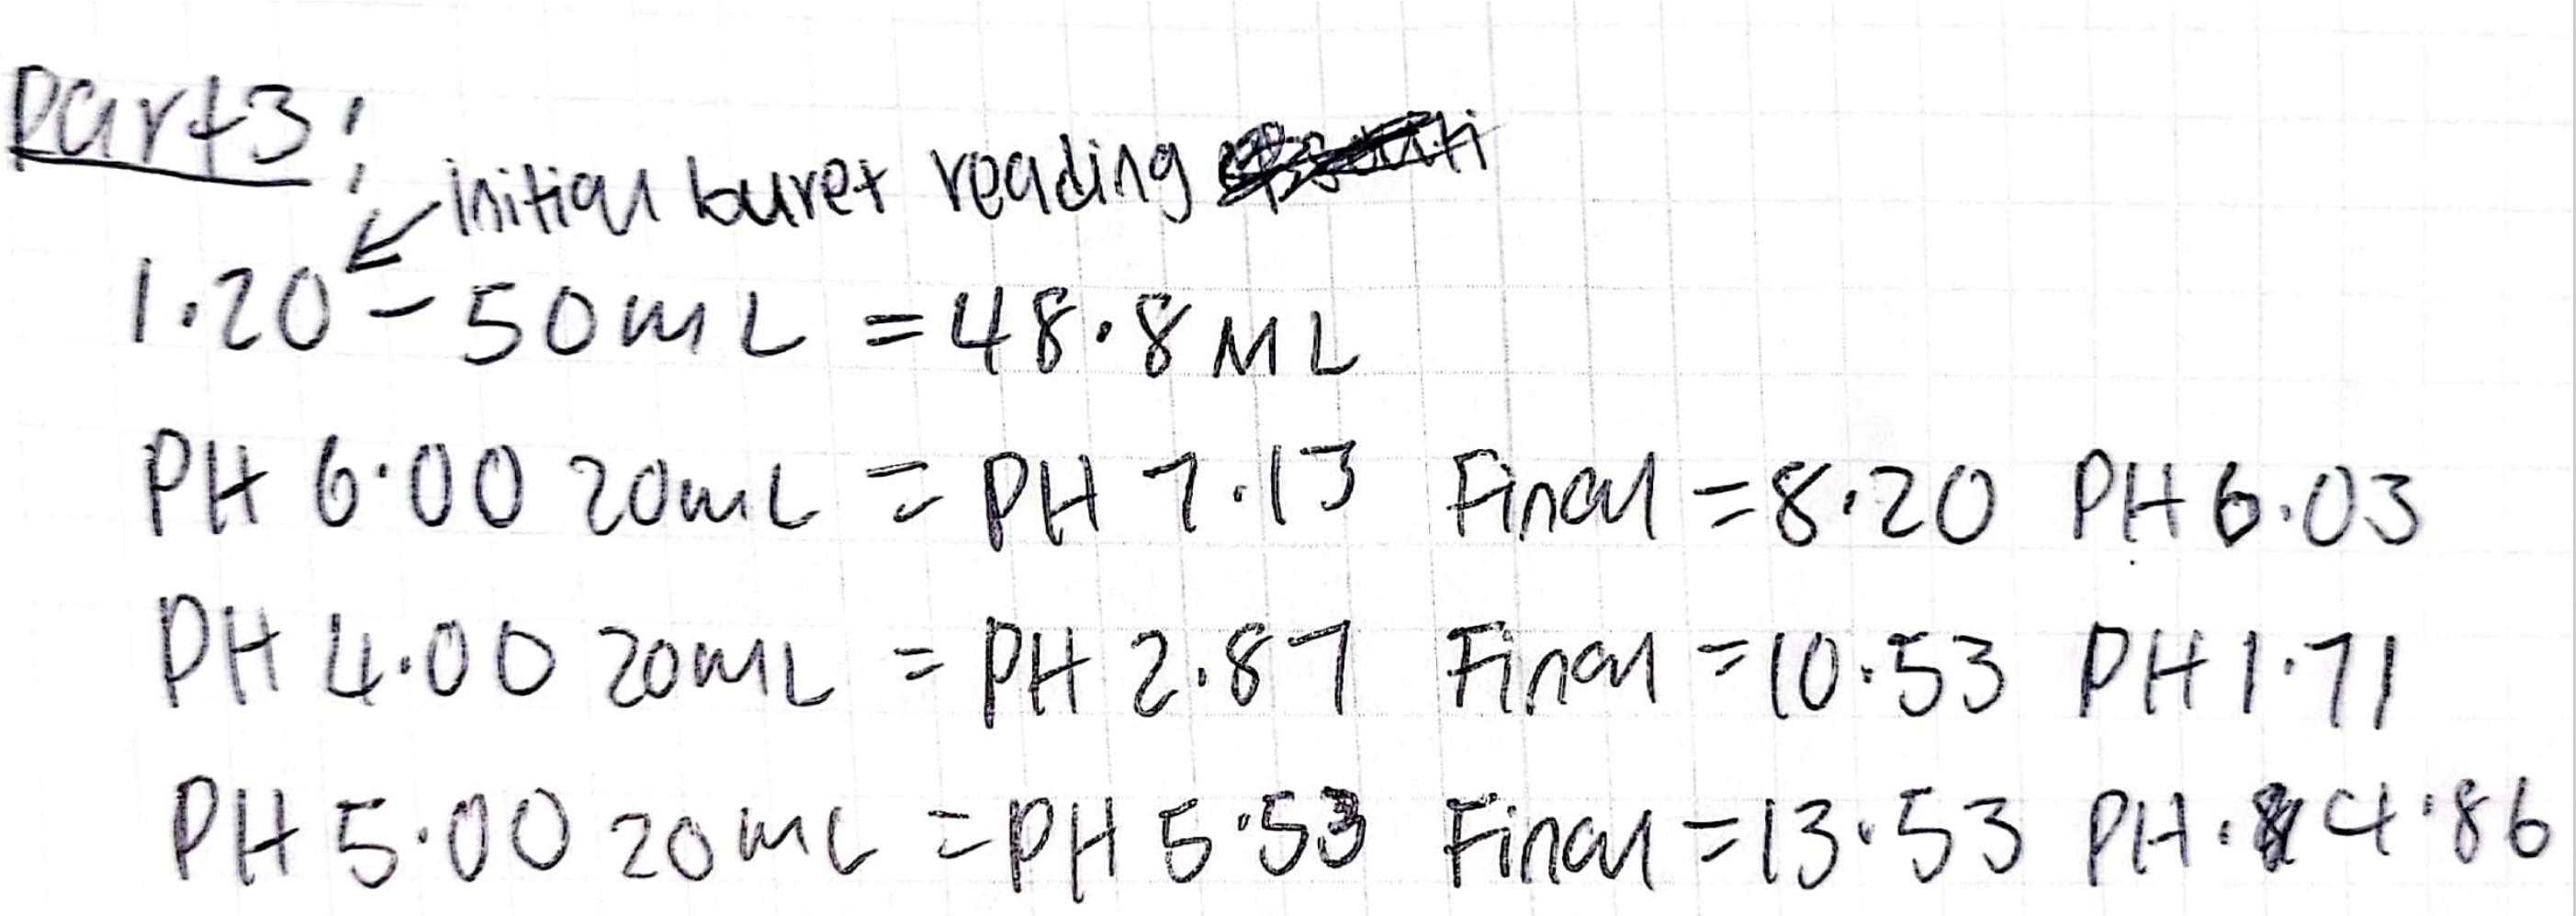 Part 3:
initial buret reading
1.20 - 50mL = 48.8 ML
PH 6.00 20mL = PH 7.13 Final = 8.20 PH 6.03
PH 4.00 20mL = PH 2.87 Final = 10.53 PH 1.71
PH 5.00 20mL = PH 5.53 Final = 13.53 PH. 4.86